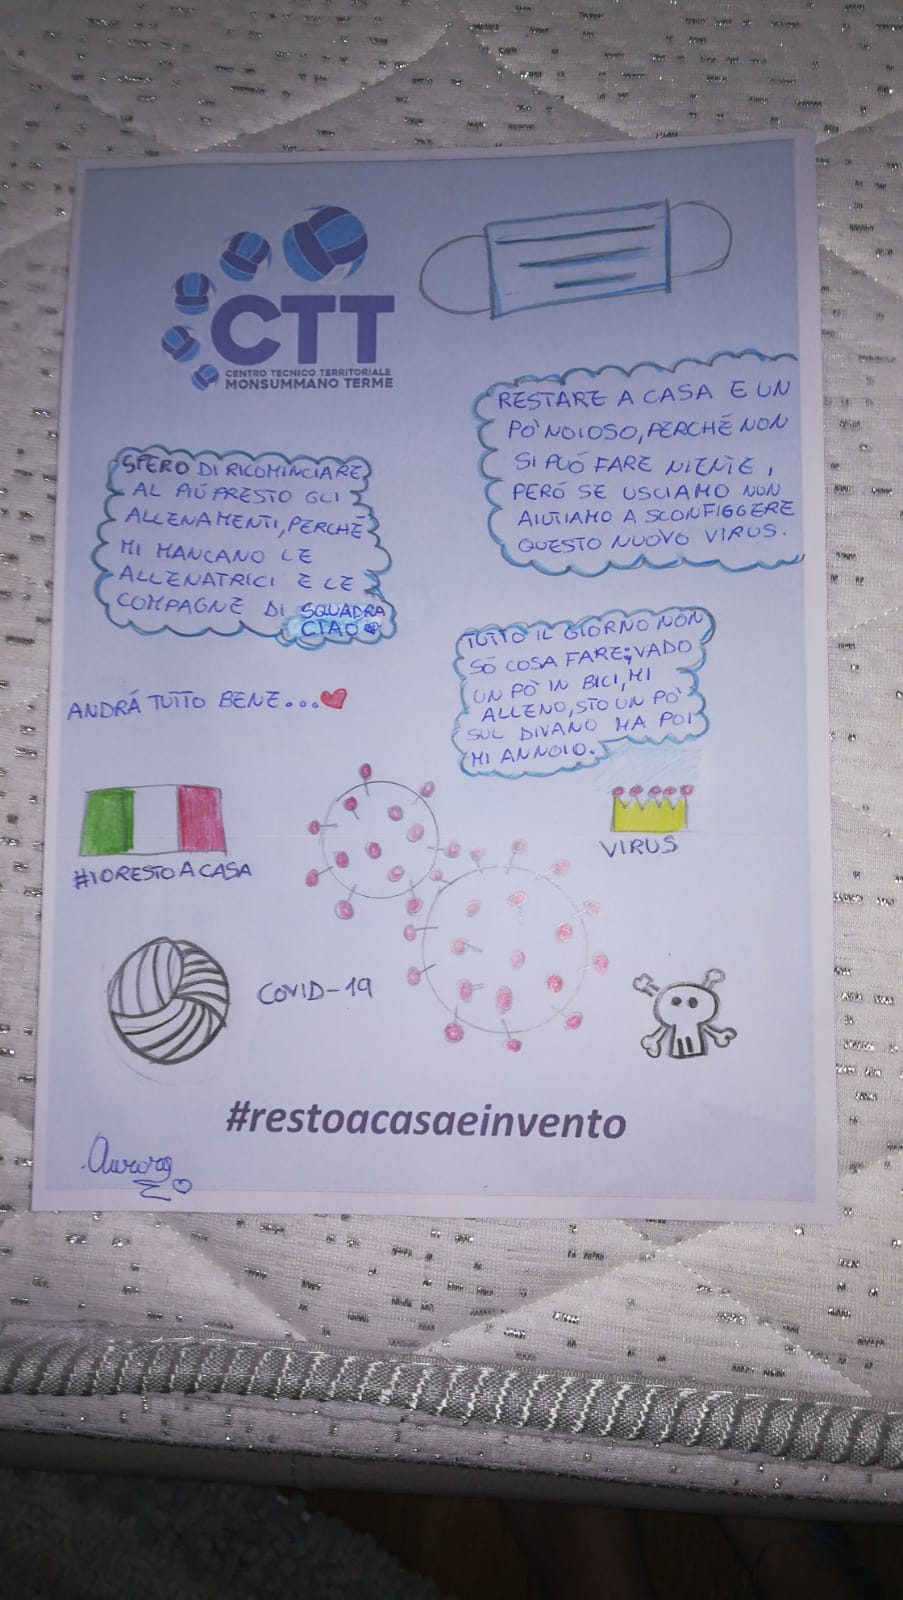 CTT
CENTRO TECNICO TERRITORIALE
MONSUMMANO TERME
RESTARE A CASA E UN
PO' NOIOSO, PERCHÉ NON
SI PUÓ FARE NIENTE,
PERÓ SE USCIAMO NON
AIUTIAMO A SCONFIGGERE
QUESTO NUOVO VIRUS.
SPERO DI RICOMINCIARE
AL PIÚ PRESTO GLI
ALLENAMENTI, PERCHÉ
MI MANCANO LE
ALLENATRICI E LE
COMPAGNE DI SQUADRA
CIAO
TUTTO IL GIORNO NON
SÓ COSA FARE; VADO
UN PÓ IN BICI, MI
ALLENO, STO UN PÓ
SUL DIVANO MA POI
MI ANNOIO.
ANDRÁ TUTTO BENE...
#IORESTOACASA
VIRUS
COVID-19
#restoacasaeinvento
Aurora